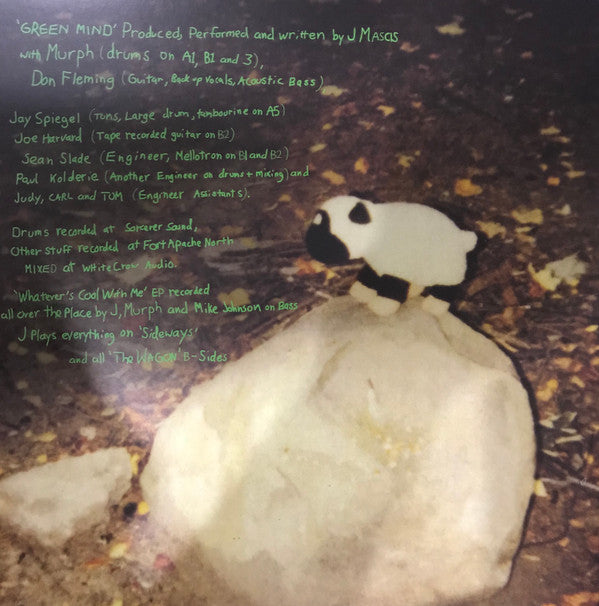 'GREEN MIND' Produced, Performed and written by J MASCIS
with Murph (drums on A1, B1 and 3),
Don Fleming (Guitar, Back up vocals, Acoustic Bass)
Jay Spiegel (Toms, Large drum, tambourine on A5)
Joe Harvard (Tape recorded guitar on B2)
Sean Slade (Engineer, Mellotron on B1 and B2)
Paul Kolderie (Another Engineer on drums + mixing) and
Judy, CARL and TOM (Engineer Assistants).
Drums recorded at Sorcerer Sound,
Other stuff recorded at Fort Apache North
MIXED at White Crow Audio.
'Whatever's Cool With Me' EP recorded
all over the Place by J, Murph and Mike Johnson on Bass
J Plays everything on 'Sideways'
and all 'The WAGON' B-Sides